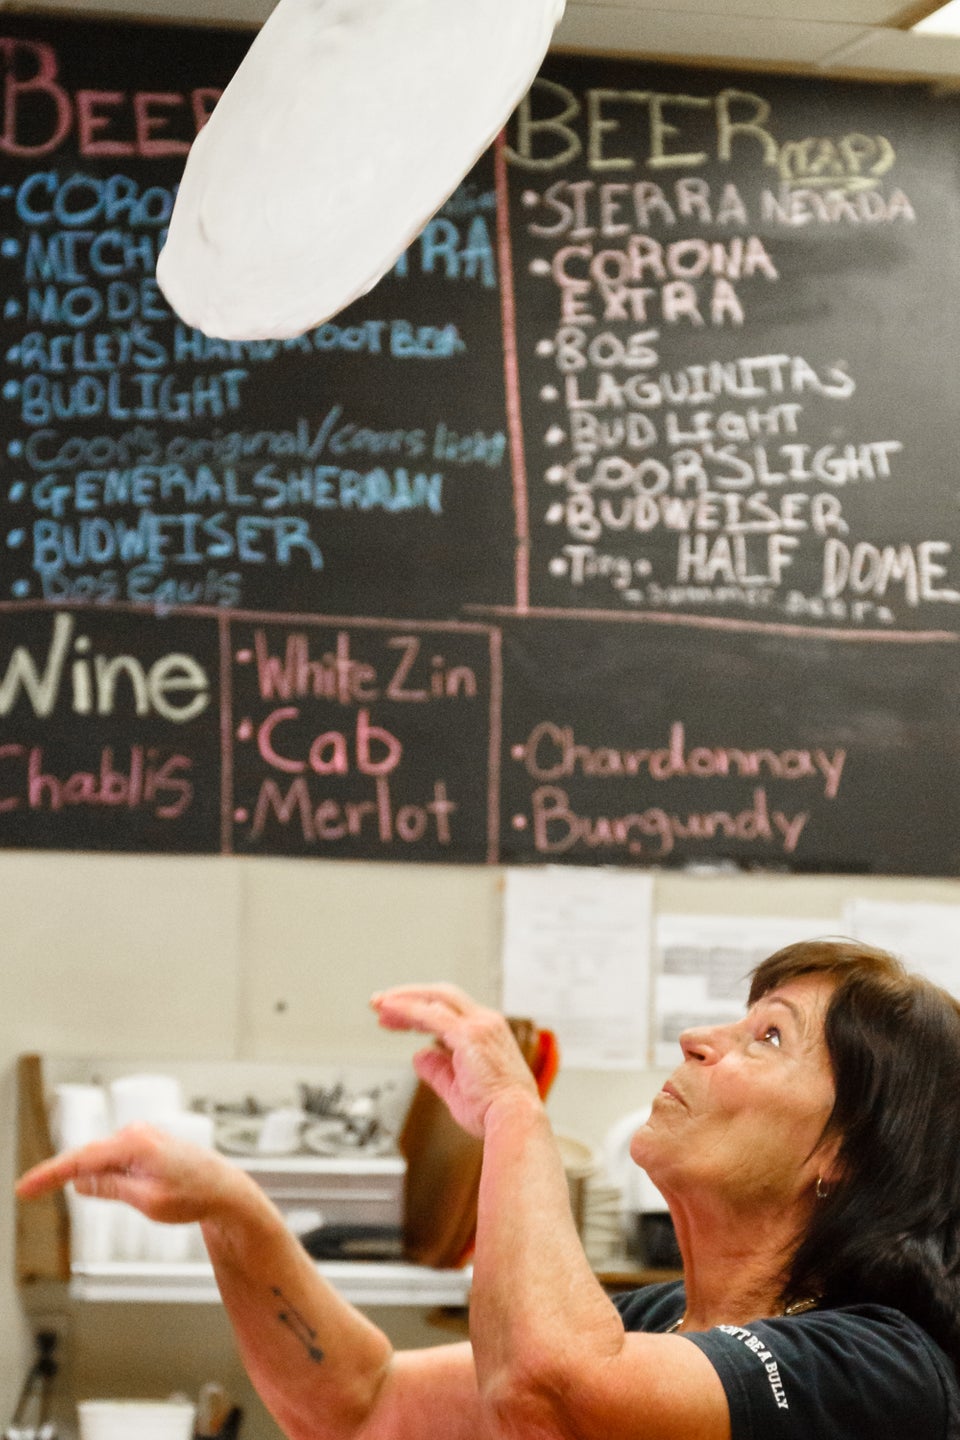 BEER
CORO
MICH TRA
MODE
RILEY'S HARD ROOT BEER
BUDLIGHT
Coor's original/coors light
GENERAL SHERMAN
BUDWEISER
Dos Equis
BEER (TAP)
SIERRA NEVADA
CORONA
EXTRA
805
LAGUINITAS
BUD LIGHT
COOR'S LIGHT
BUDWEISER
HALF DOME
Wine
Chablis
White Zin
Cab
Merlot
Chardonnay
Burgundy
DON'T BE A BULLY